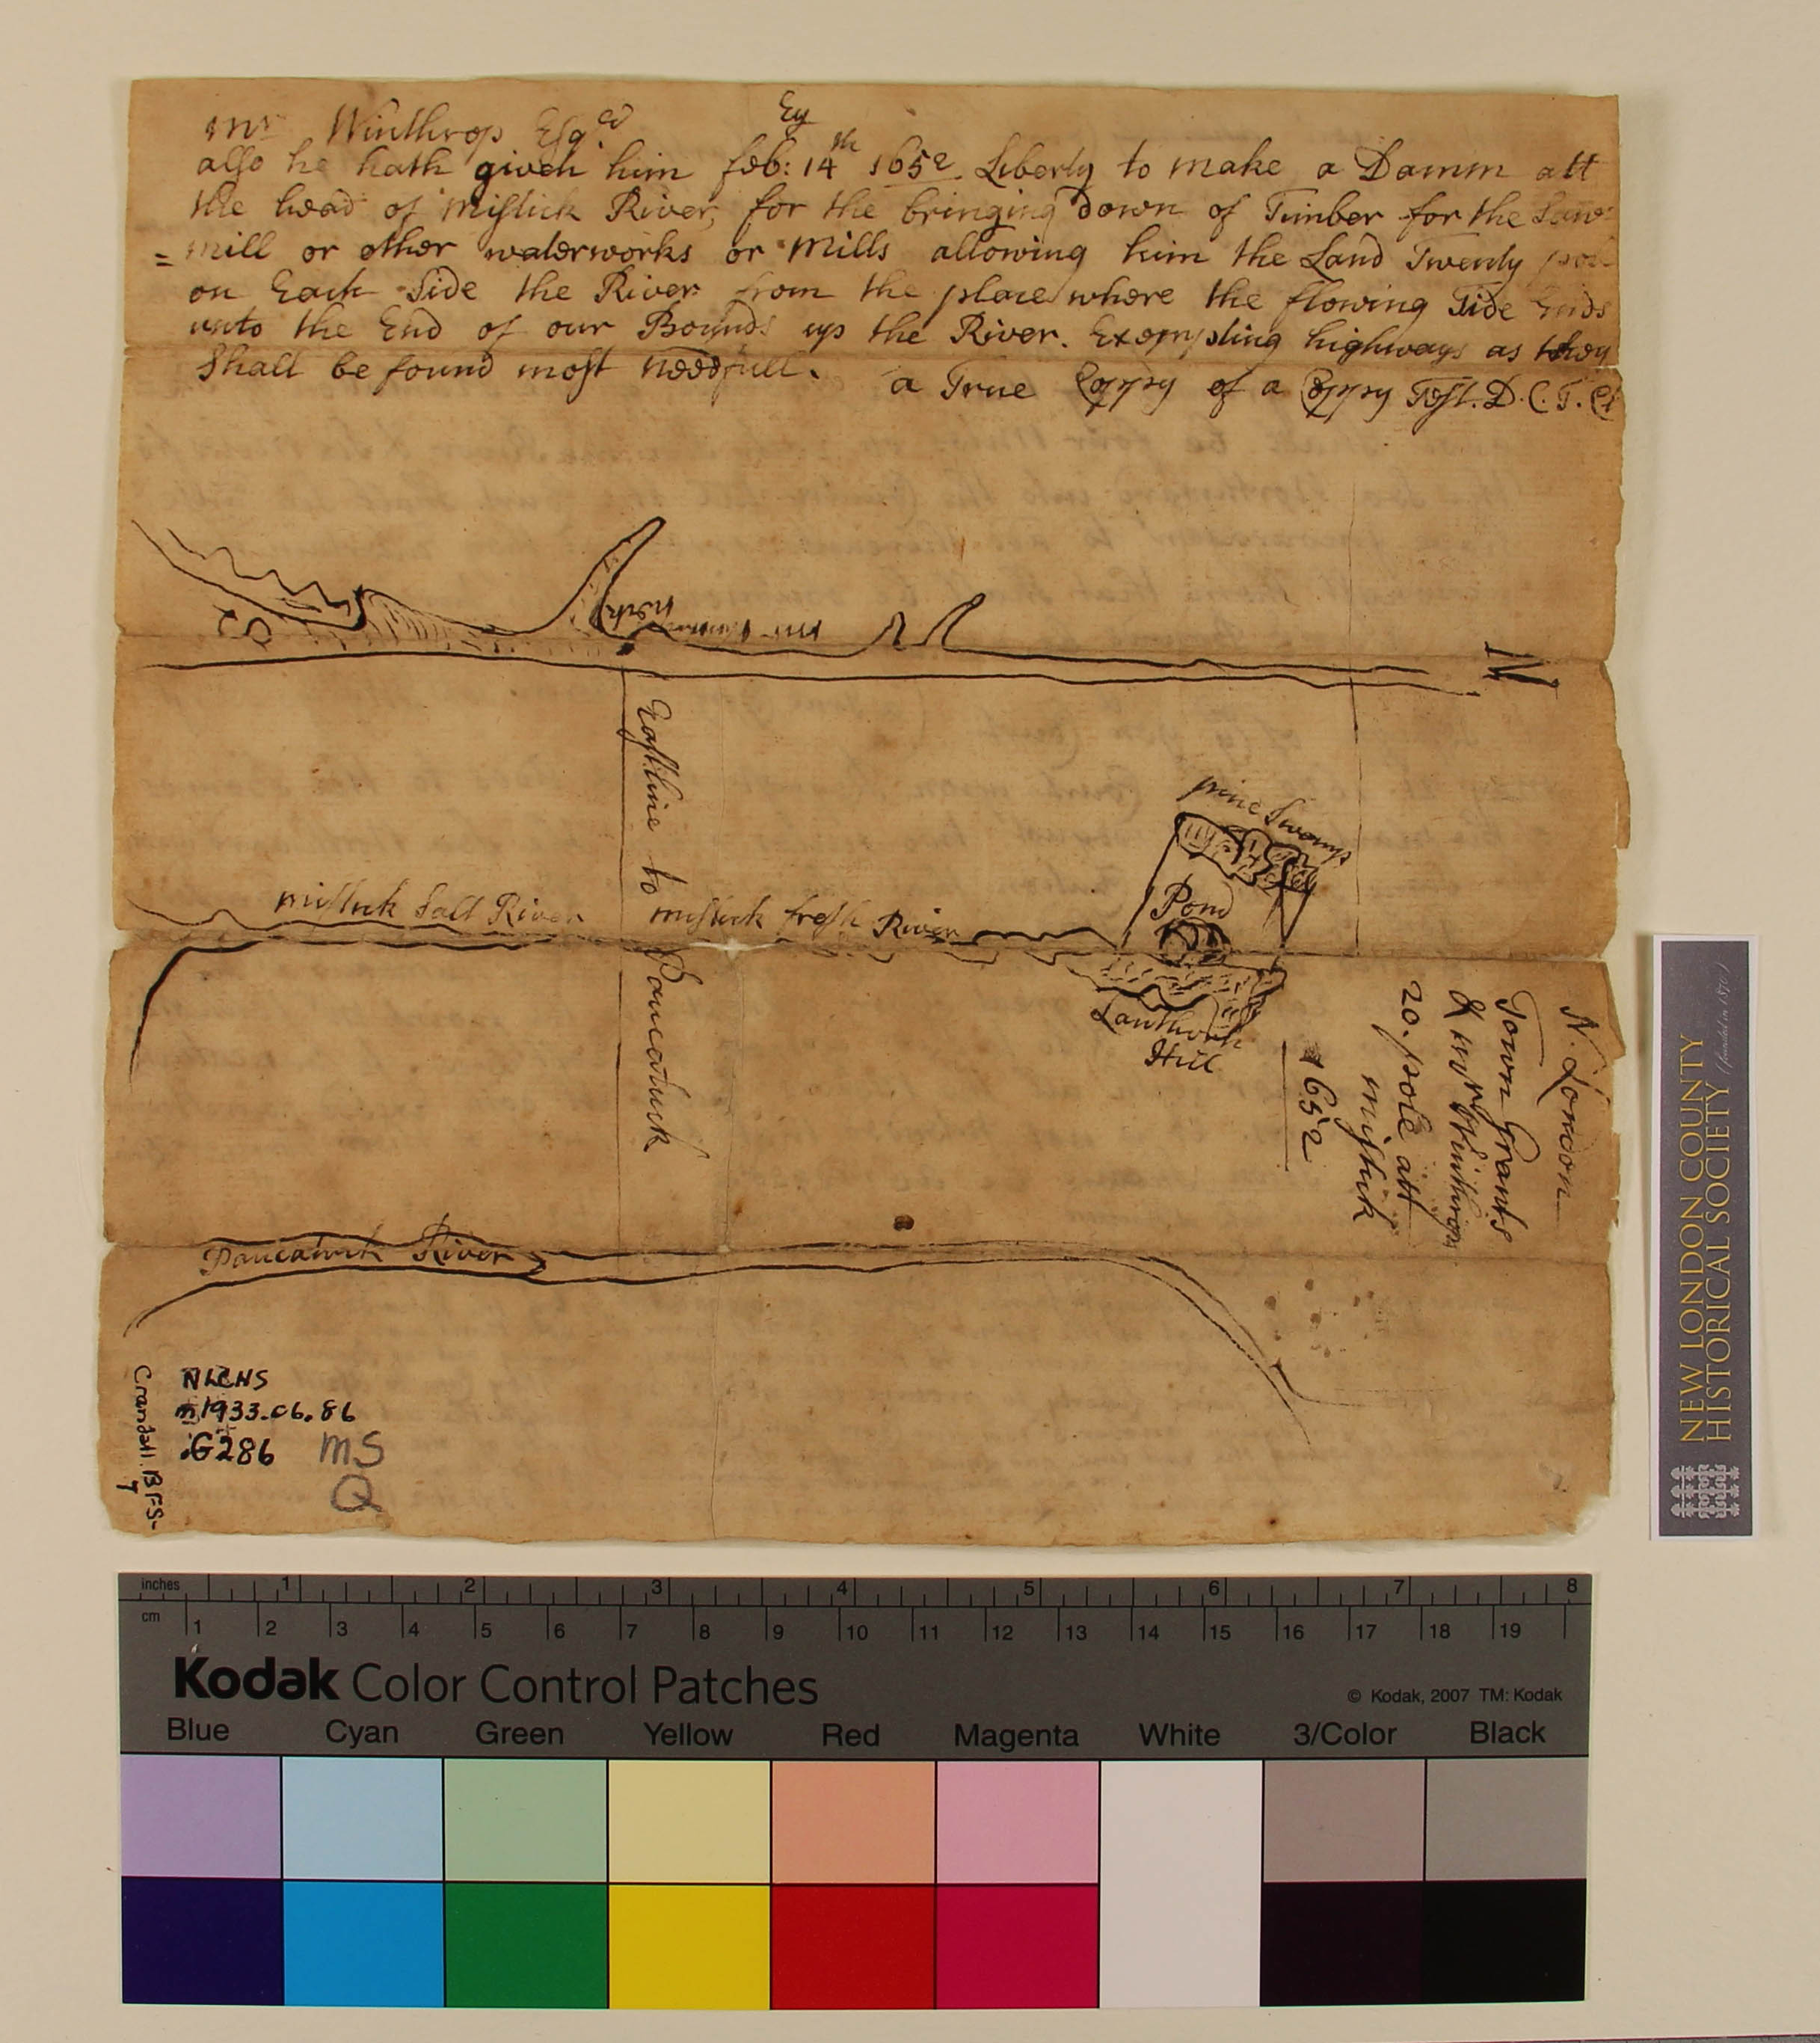 mr Winthrop Esqr
also he hath given him feb: 14th 1652 Liberty to make a Damm att
the head of Mistick River, for the bringing down of Timber for the Saw
= mill or other waterworks or Mills allowing him the Land Twenty pol
on Each Side the River from the place where the flowing Tide Ends
unto the End of our Bounds up the River. Exempting highways as they
Shall be found most needfull.
a True Coppy of a Coppy Test. D. C. T. Cl
S
mr
N
East line to Paucatuck
pine Swamp
Pond
mistick Salt River
mistick fresh River
Lanthorn
Hill
N. London
Town Grants
& mr Winthrops
20. pole att
mistick
1652
Paucatuck River
NLCHS
m1933.06.86
G286
MS
Q
Crandall. BFS-
7
NEW LONDON COUNTY
HISTORICAL SOCIETY (founded in 1870)
inches 1 2 3 4 5 6 7 8
cm 1 2 3 4 5 6 7 8 9 10 11 12 13 14 15 16 17 18 19
Kodak Color Control Patches
© Kodak, 2007 TM: Kodak
Blue Cyan Green Yellow Red Magenta White 3/Color Black